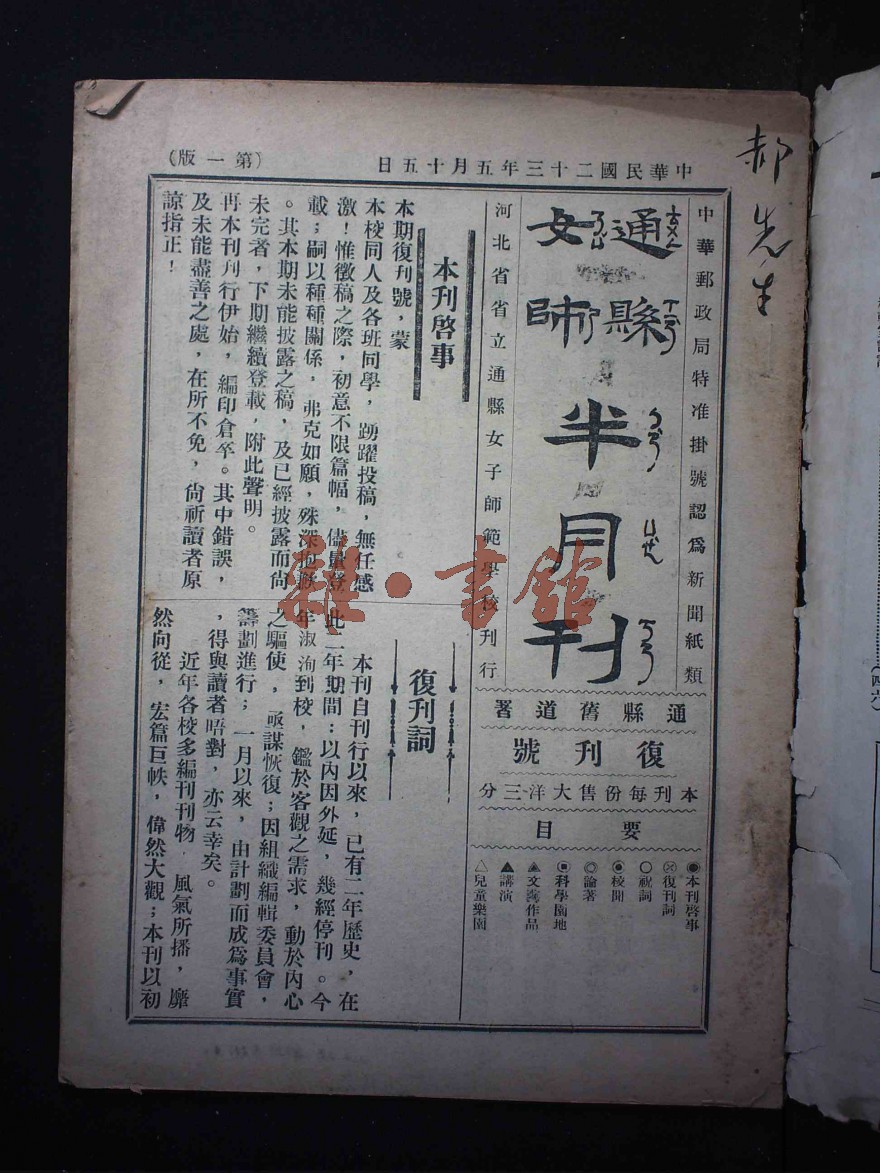 郝先生
中華民國二十三年五月十五日
（第一版）
中華郵政局特准掛號認爲新聞紙類
通縣
女師
半月刊
河北省省立通縣女子師範學校刊行
通縣舊道署
復刊號
本刊每份售大洋三分
要目
◉本刊啓事
復刊詞
○祝詞
◉校聞
◎論著
科學園地
文藝作品
▲講演
△兒童樂園
本刊啓事
本期復刊號，蒙
本校同人及各班同學，踴躍投稿，無任感
激！惟徵稿之際，初意不限篇幅，儘量登
載；嗣以種種關係，弗克如願，殊深抱歉
。其本期未能披露之稿，及已經披露而尙
未完者，下期繼續登載，附此聲明。
再本刊刋行伊始，編印倉卒。其中錯誤，
及未能盡善之處，在所不免，尙祈讀者原
諒指正！
復刊詞
本刊自刊行以來，已有二年歷史，在
此二年期間：以內因外延，幾經停刊。今
年淑洵到校，鑑於客觀之需求，動於內心
之驅使，亟謀恢復；因組織編輯委員會，
籌劃進行；一月以來，由計劃而成爲事實
，得與讀者晤對，亦云幸矣。
近年各校多編刊刊物，風氣所播，靡
然向從，宏篇巨帙，偉然大觀；本刊以初
雜·書館